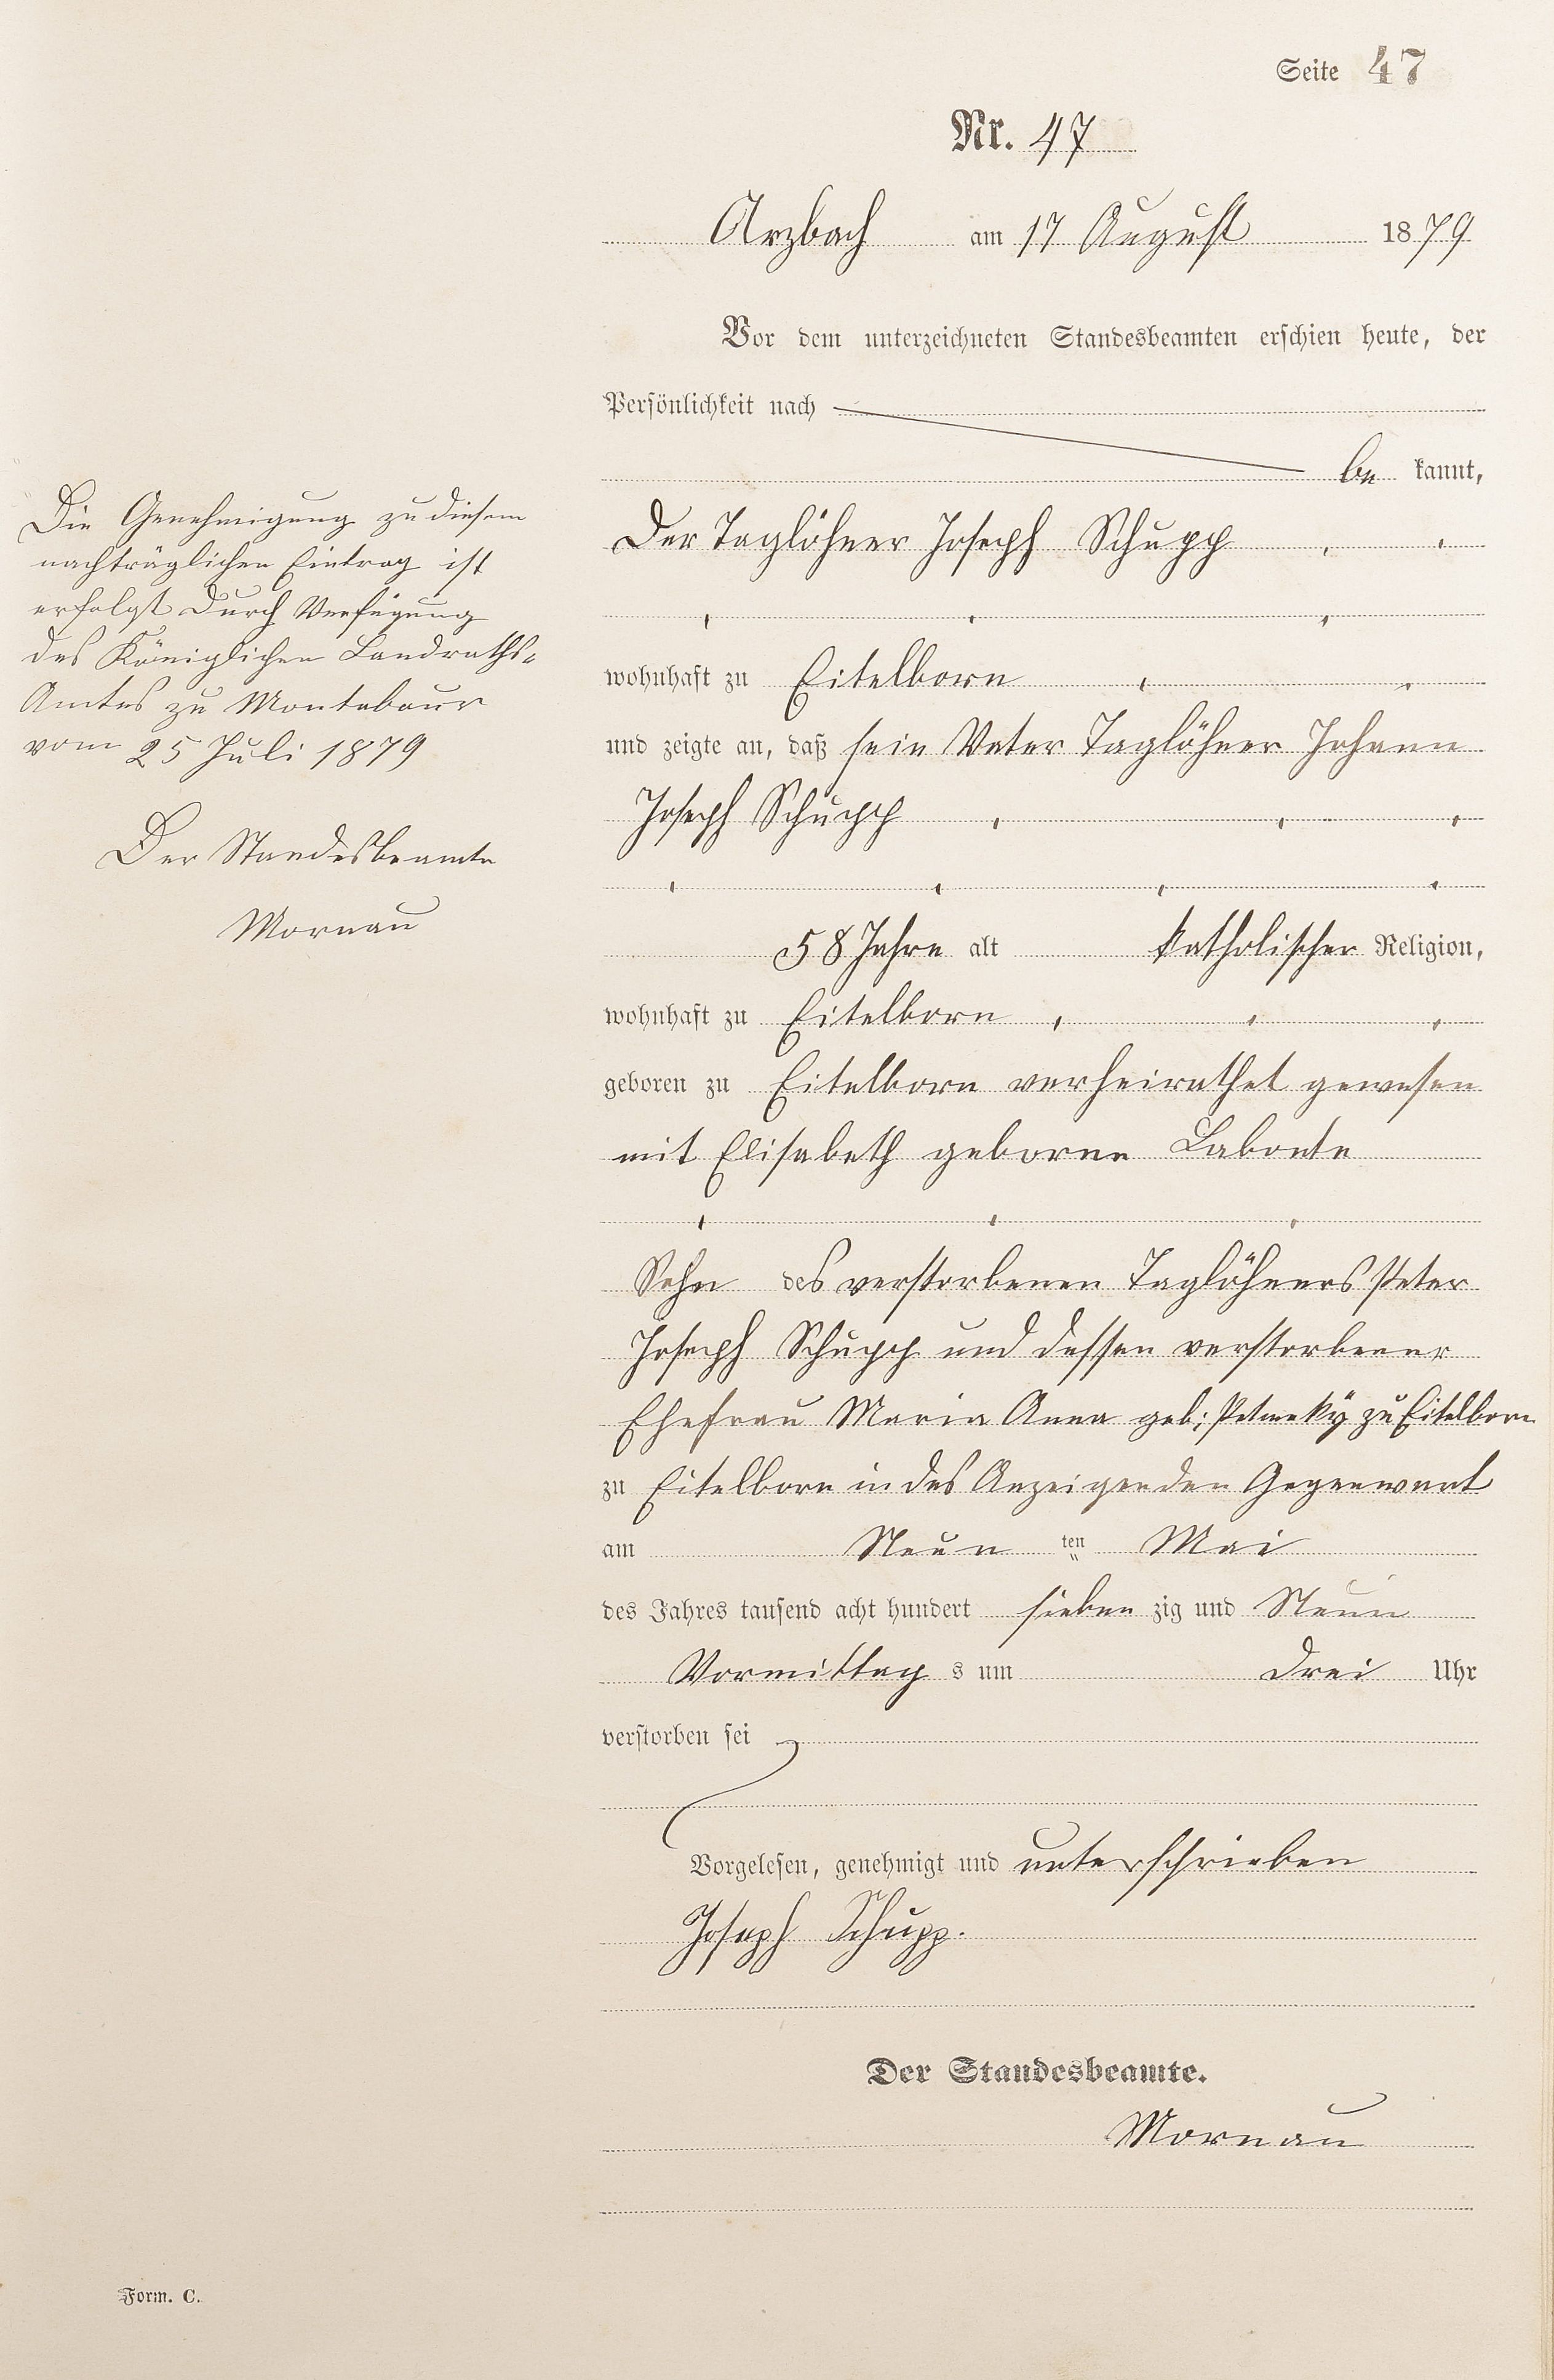 Seite 47
Nr. 47
Arzbach am 17 August 1879
Vor dem unterzeichneten Standesbeamten erschien heute, der
Persönlichkeit nach
be kannt,
Der Taglöhner Joseph Schupp
wohnhaft zu Eitelborn
und zeigte an, daß sein Vater Taglöhner Johann
Joseph Schupp
58 Jahre alt katholischer Religion,
wohnhaft zu Eitelborn
geboren zu Eitelborn verheirathet gewesen
mit Elisabeth geborne Labonte
Sohn des verstorbenen Taglöhners Peter
Joseph Schupp und dessen verstorbener
Ehefrau Maria Anna geb: zu Eitelborn
zu Eitelborn in des Anzeigenden Gegenwart
am Neun ten Mai
des Jahres tausend acht hundert sieben zig und Neun
Vormittag s um drei Uhr
verstorben sei
Vorgelesen, genehmigt und unterschrieben
Joseph Schupp.
Der Standesbeamte.
Mornau
Die Genehmigung zu diesem
nachträglichen Eintrag ist
erfolgt durch Verfügung
des Königlichen Landraths-
Amtes zu Montabaur
vom 25 Juli 1879
Der Standesbeamte
Mornau
Form. C.